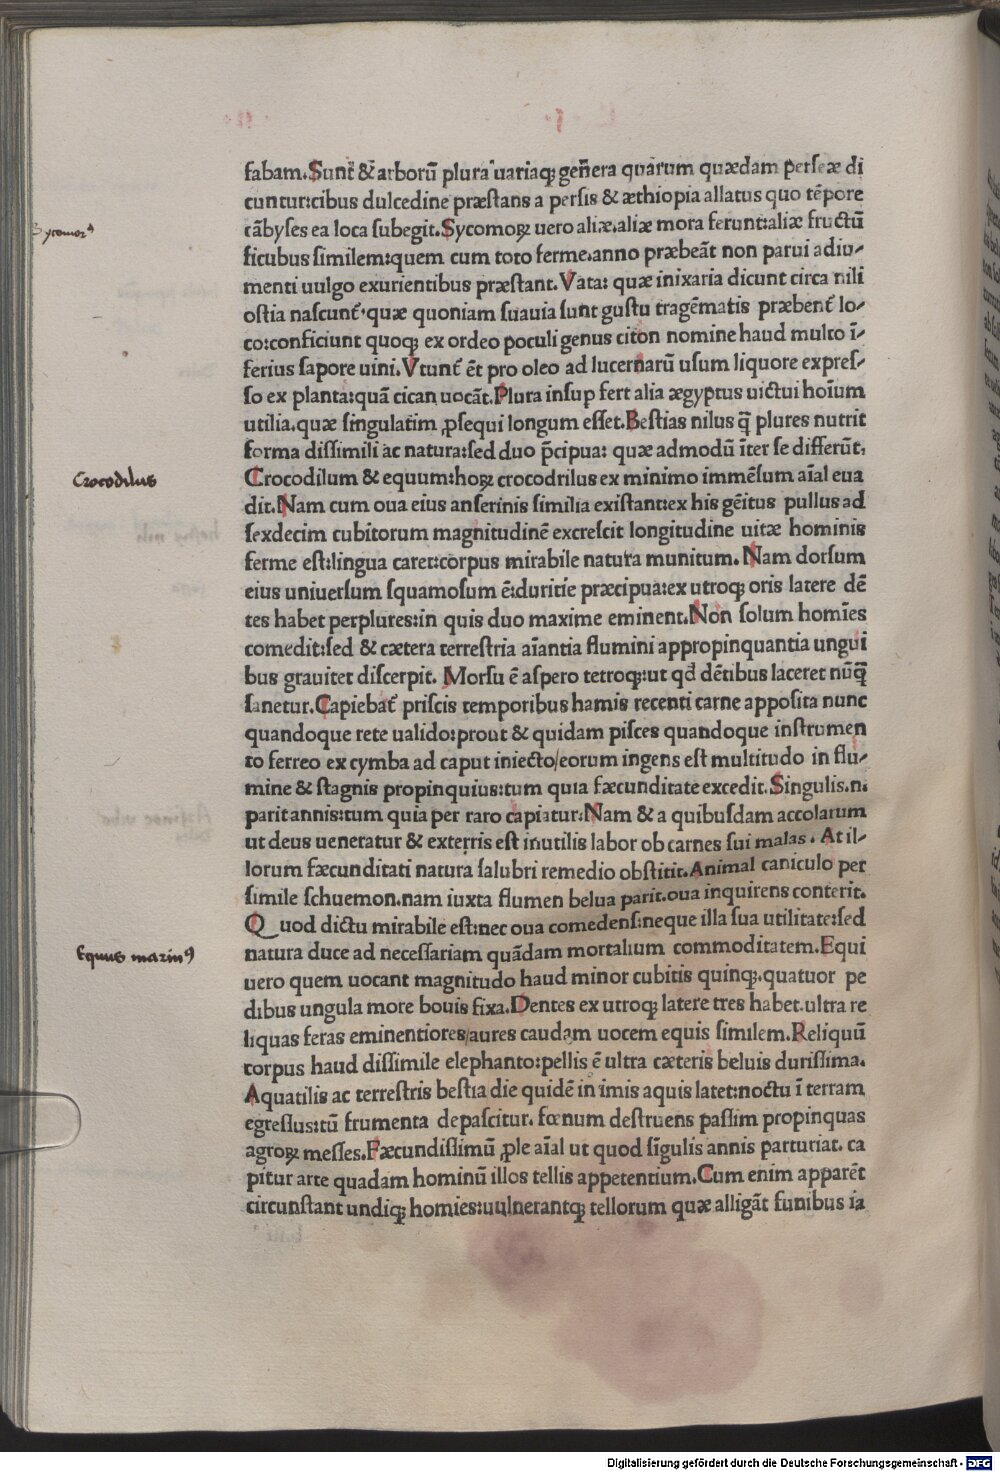 fabam. Sunt̃ & arborū plura uariaq; geñera quarum quædam perseæ di
cuntur: cibus dulcedine præstans a persis & æthiopia allatus quo tēpore
cābyses ea loca subegit. Sycomoꝝ uero aliæ. aliæ mora ferunt: aliæ fructū
ficubus similem: quem cum toto ferme. anno præbeāt non parui adiu-
menti uulgo exurientibus præstant. Vata: quæ inixaria dicunt circa nili
ostia nascunt̃. quæ quoniam suauia sunt gustu tragēmatis præbent̃ lo-
co: conficiunt quoq; ex ordeo poculi genus citon nomine haud multo ī-
ferius sapore uini. Vtunt̃ ēt pro oleo ad lucernarū usum liquore expres-
so ex planta: quā cican uocāt. Plura insup fert alia ægyptus uictui hoīum
utilia. quæ singulatim ꝓsequi longum esset. Bestias nilus q̄ plures nutrit
forma dissimili ac natura: sed duo p̄cipua: quæ admodū īter se differūt,
Crocodilum & equum: hoꝝ crocodrilus ex minimo immēsum aīal eua
dit. Nam cum oua eius anserinis similia existant: ex his gēitus pullus ad
sexdecim cubitorum magnitudinē excrescit longitudine uitæ hominis
ferme est: lingua caret: corpus mirabile natura munitum. Nam dorsum
eius uniuersum squamosum ē: duritie præcipua: ex utroq; oris latere dē
tes habet perplures: in quis duo maxime eminent. Non solum homīes
comedit: sed & cætera terrestria aīantia flumini appropinquantia ungui
bus grauiter discerpit. Morsu ē aspero tetroq;: ut qd̄ dētibus laceret nūq̄
sanetur. Capiebat̃ priscis temporibus hamis recenti carne apposita nunc
quandoque rete ualido: prout & quidam pisces quandoque instrumen
to ferreo ex cymba ad caput iniecto/ eorum ingens est multitudo in flu-
mine & stagnis propinquius: tum quia fæcunditate excedit. Singulis. n.
parit annis: tum quia per raro capiatur: Nam & a quibusdam accolarum
ut deus ueneratur & exterris est inutilis labor ob carnes sui malas. At il-
lorum fæcunditati natura salubri remedio obstitit. Animal caniculo per
simile schuemon. nam iuxta flumen belua parit. oua inquirens conterit.
Quod dictu mirabile est: nec oua comedens: neque illa sua utilitate: sed
natura duce ad necessariam quādam mortalium commoditatem. Equi
uero quem uocant magnitudo haud minor cubitis quinq;. quatuor pe
dibus ungula more bouis fixa. Dentes ex utroq; latere tres habet. ultra re
liquas feras eminentiores/ aures caudam uocem equis similem. Reliquū
corpus haud dissimile elephanto: pellis ē ultra cæteris beluis durissima.
Aquatilis ac terrestris bestia die quidē in imis aquis latet: noctu ī terram
egressus: tū frumenta depascitur. fœnum destruens passim propinquas
agroꝝ messes. Fæcundissimū ꝓle aīal ut quod sīgulis annis parturiat. ca
pitur arte quadam hominū illos tellis appetentium. Cum enim apparēt
circunstant undiq; homies: uulnerantq; tellorum quæ alligāt funibus ia
Crocodilus
Equus marinꝰ
Digitalisierung gefördert durch die Deutsche Forschungsgemeinschaft - DFG